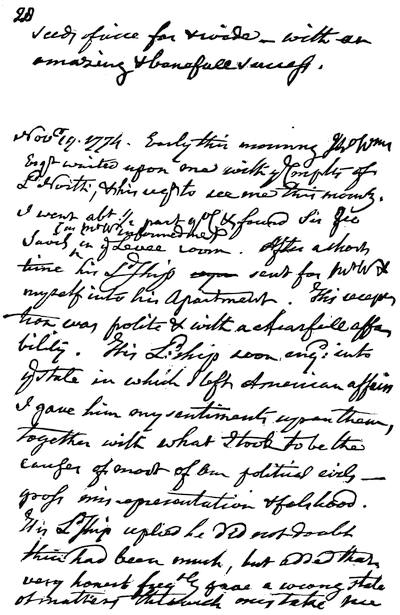 28
seeds of vice far & wide — with an
amazing & banefull success.
Nov.r 19. 1774. Early this morning Jho Wms
Esqr waited upon me with ye Complts of
Ld North, & his reqst to see me this morng.
I went abt ½ past 9 oC & found Sir Geo
Savil, in ye Levee room. After a short
as Mr Wms informed me
time his Ldship sent for Mr W &
myself into his Apartment. His recep
tion was polite & with a chearfull affa
bility. His Ldship soon enqd into
ye state in which I left American affairs
I gave him my sentiments upon them,
together with what I took to be the
causes of most of our political evils —
gross misrepresentation & falshood.
His Ldship replied he did not doubt
there had been much, but added that
very honest freqtly gave a wrong state
of matters through mistake